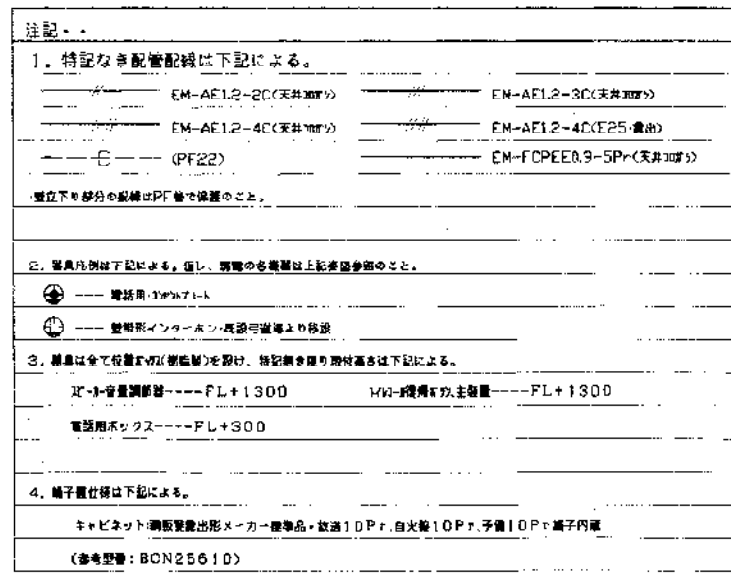 注記・・
1. 特記なき配管配線は下記による。
EM-AE1.2-2C(天井コロガシ) EM-AE1.2-3C(天井コロガシ)
EM-AE1.2-4C(天井コロガシ) EM-AE1.2-4C(E25・露出)
E (PF22) EM-FCPEE0.9-5Pr(天井コロガシ)
・壁立下り部分の配線はPF管で保護のこと。
2. 器具凡例は下記による。但し、弱電の各機器は上記姿図参照のこと。
--- 電話用・
--- 壁掛形インターホン・
3. 器具は全て位置ボックス(樹脂製)を設け、特記無き限り取付高さは下記による。
スピーカー音量調節器----FL+1300 主装置----FL+1300
電話用ボックス----FL+300
4. 端子盤仕様は下記による。
キャビネット:鋼板製露出形メーカー標準品・放送10Pr.自火報10Pr.予備10Pr端子内蔵
(参考型番:BCN25610)